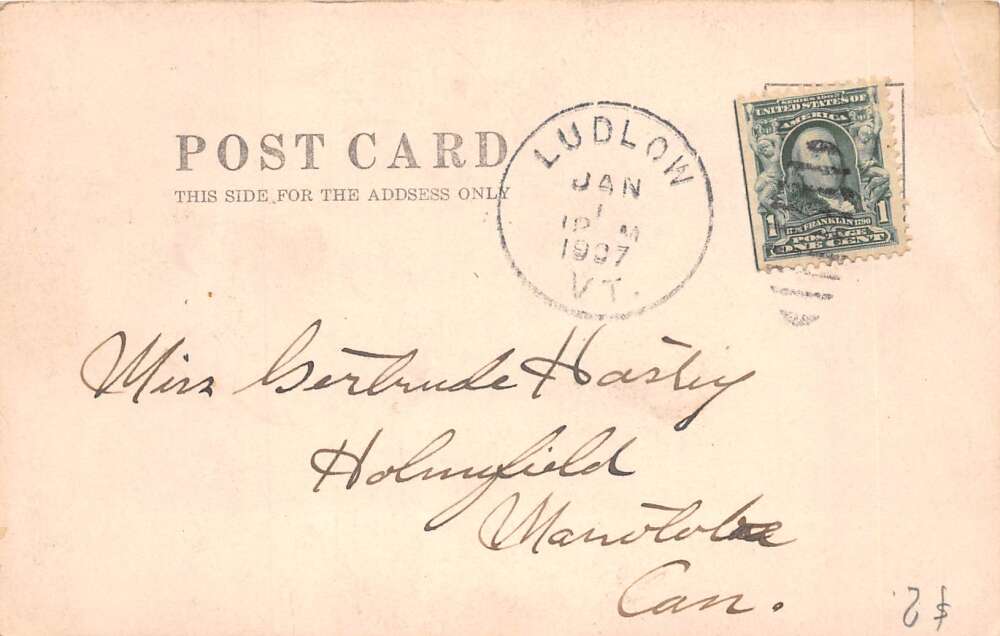 POST CARD
THIS SIDE FOR THE ADDSESS ONLY
LUDLOW
JAN
1
12 M
1907
VT.
SERIES 1902
UNITED STATES OF
AMERICA
1706 FRANKLIN 1790
1 POSTAGE 1
ONE CENT
Miss Gertrude Hasley
Holmfield
Manitoba
Can.
2$